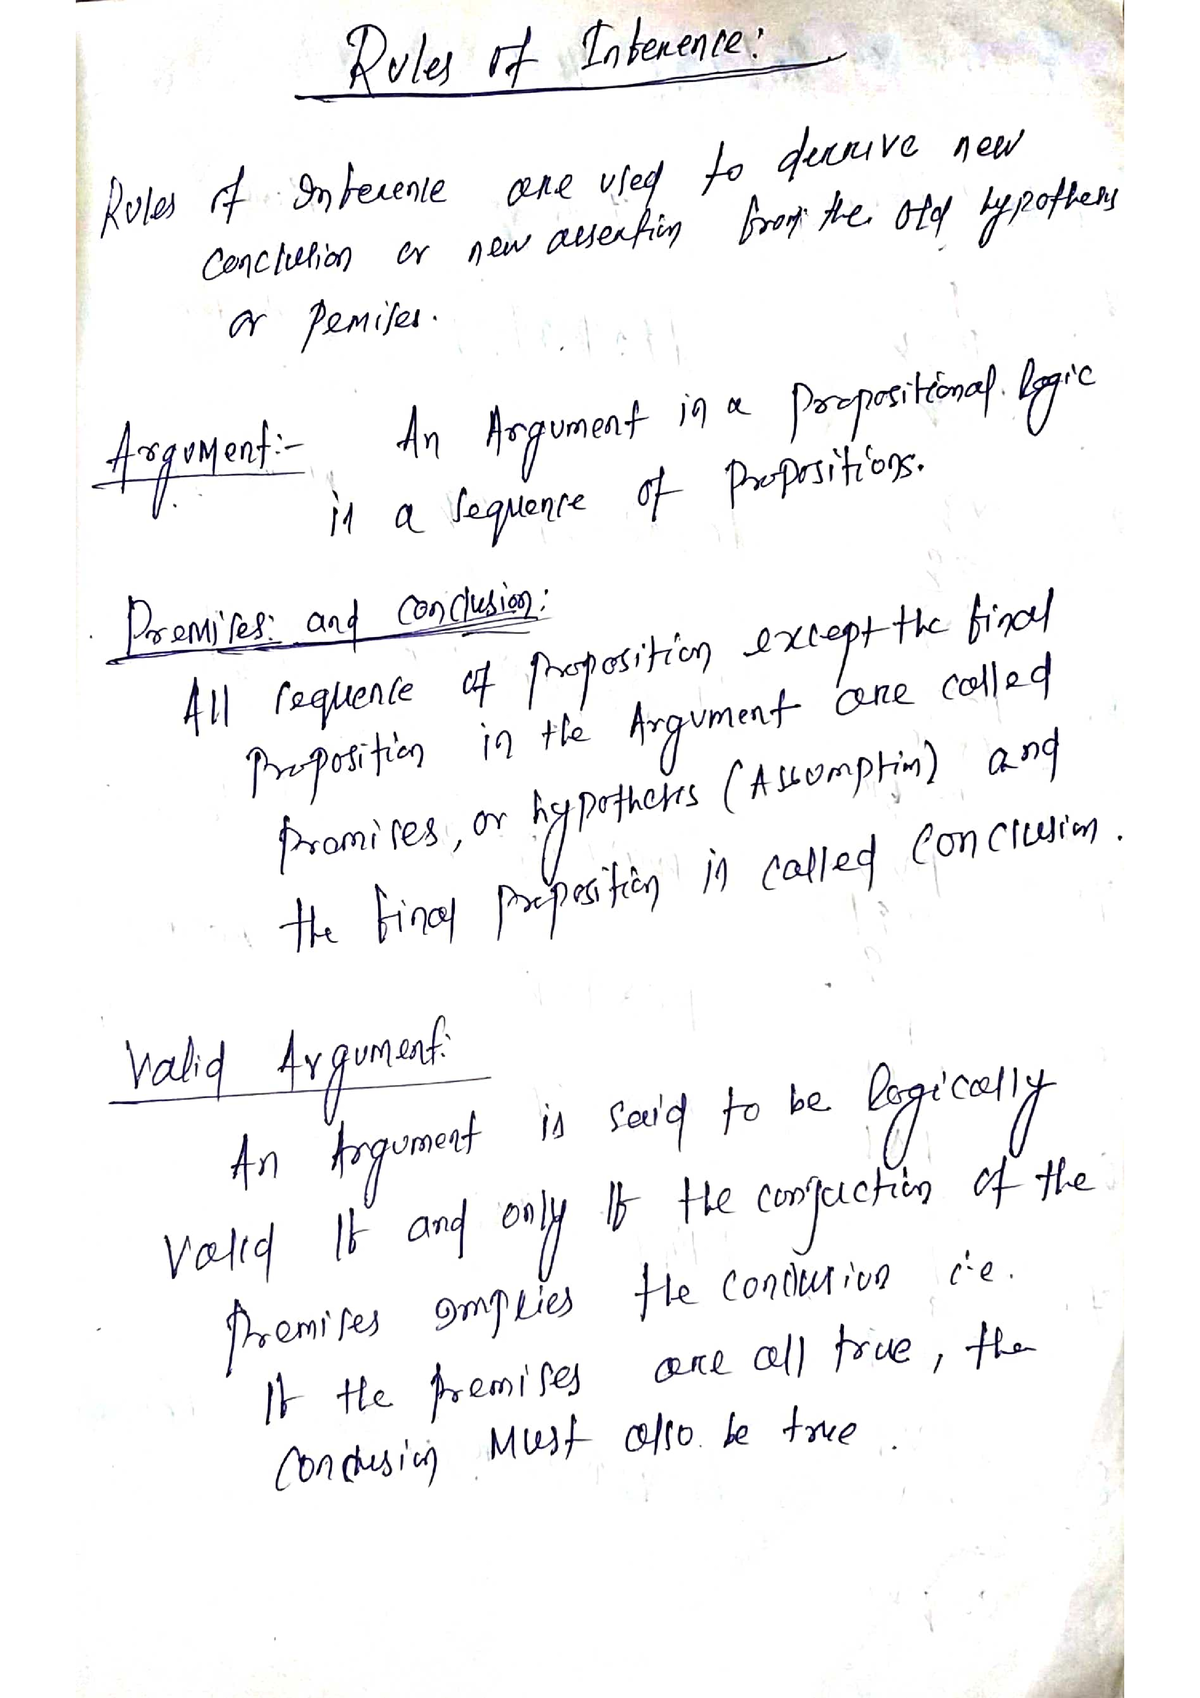 Rules of Inference:
Rules of Inference are used to derive new
conclusion or new assertion from the old hypothesis
or Pemises.
Argument:- An Argument in a Propositional logic
is a sequence of Propositions.
Premises: and conclusion:
All sequence of proposition except the final
Proposition in the Argument are called
Premises, or hypothesis (Assumption) and
the final proposition is called Conclusion.
Valid Argument:
An Argument is said to be logically
Valid If and only If the conjuction of the
Premises Implies the conclusion i.e.
If the premises are all true, the
Conclusion Must also be true.